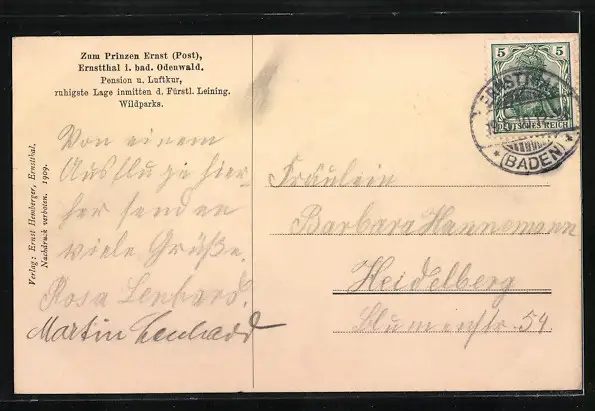 Zum Prinzen Ernst (Post),
Ernstthal i. bad. Odenwald.
Pension u. Luftkur,
ruhigste Lage inmitten d. Fürstl. Leining.
Wildparks.
Verlag: Ernst Hemberger, Ernstthal.
Nachdruck verboten. 1909.
Von einem
Ausfluge hier-
her senden
viele Grüße.
Rosa Lenhard.
Martin Lenhard
5 5
DEUTSCHES REICH
ERNSTTHAL
* (BADEN) *
Fräulein
Barbara Hannemann
Heidelberg
Blumenstr. 54.